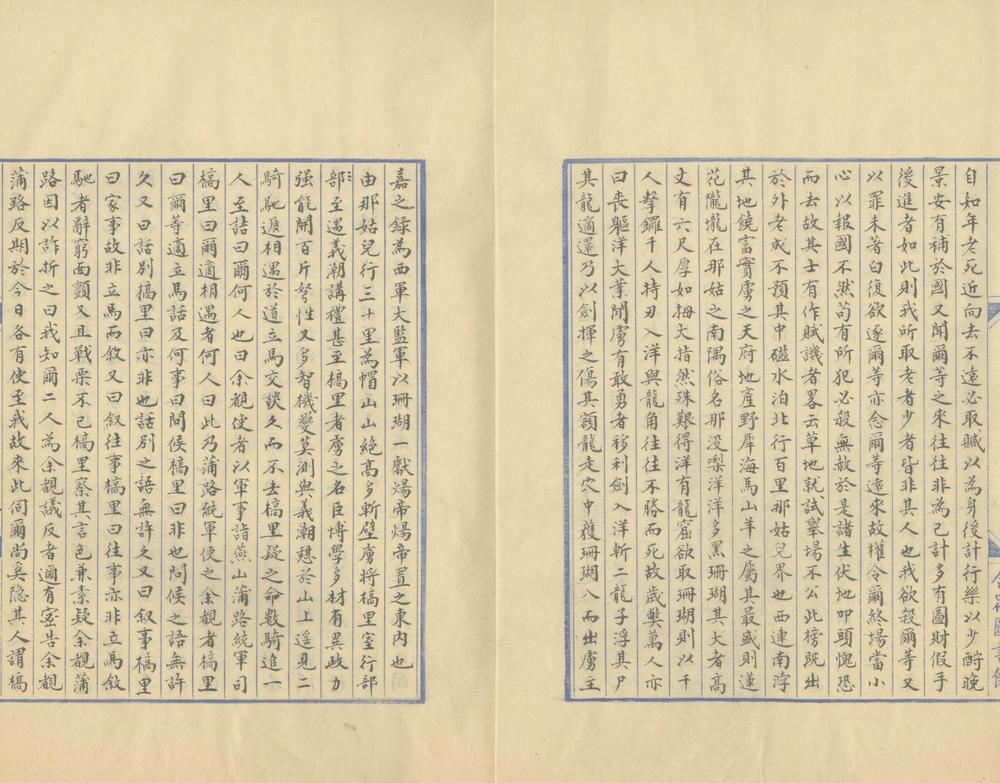 自知年老死近向去不遠必取贓以為身後計行樂以少酧晚
景安有補於國又聞爾等之來往往非為己計多有圖財假手
後進者如此則我所取老者少者皆非其人也我欲殺爾等又
以罪未著白復欲逐爾等亦念爾等遠來故權令爾終場當小
心以報國不然苟有所犯必殺無赦於是諸生伏地叩頭愧恐
而去故其士有作賦譏者畧云草地就試舉場不公此榜既出
於外老成不預其中磁水泊北行百里那姑兒界也西連南浮
其地饒富實虜之天府地產野犀海馬山羊之屬其最盛則蓮
花隴隴在那姑之南隅俗名那沒梨洋洋多黑珊瑚其大者高
丈有六尺厚如拇大指然殊艱得洋有龍窟欲取珊瑚則以千
人擊鑼千人持刃入洋與龍角往往不勝而死故歲獘萬人亦
曰喪軀洋大業閒虜有敢勇者移利劍入洋斬二龍子浮其尸
其龍適還乃以劍揮之傷其額龍走穴中獲珊瑚八而出虜主
嘉之録為西軍大監軍以珊瑚一獻煬帝煬帝置之東內也
由那姑兒行三十里為帽山山絕高多斬壁虜將槁里室行部
部至遇義潮講禮甚至槁里者虜之名臣博學多材有異政力
强能開百斤弩性又多智機變莫測與義潮憩於山上遥見二
騎馳遞相遇於道立馬交談久而不去槁里疑之命數騎追一
人至詰曰爾何人也曰余覩使者以軍事詣燕山蒲路統軍司
槁里曰爾適相遇者何人曰此乃蒲路統軍使之余覩者槁里
曰爾等適立馬話及何事曰問候槁里曰非也問候之語無許
久又曰話別槁里曰亦非也話別之語無許久又曰叙事槁里
曰家事故非立馬而敘又曰叙往事槁里曰往事亦非立馬敘
馳者辭窮面顫又且戰栗不已槁里察其言色兼素疑余覩蒲
路因以詐折之曰我知爾二人為余覩議反者邇有密告余覩
蒲路反期於今日各有使至我故來此伺爾尚奚隐其人謂槁